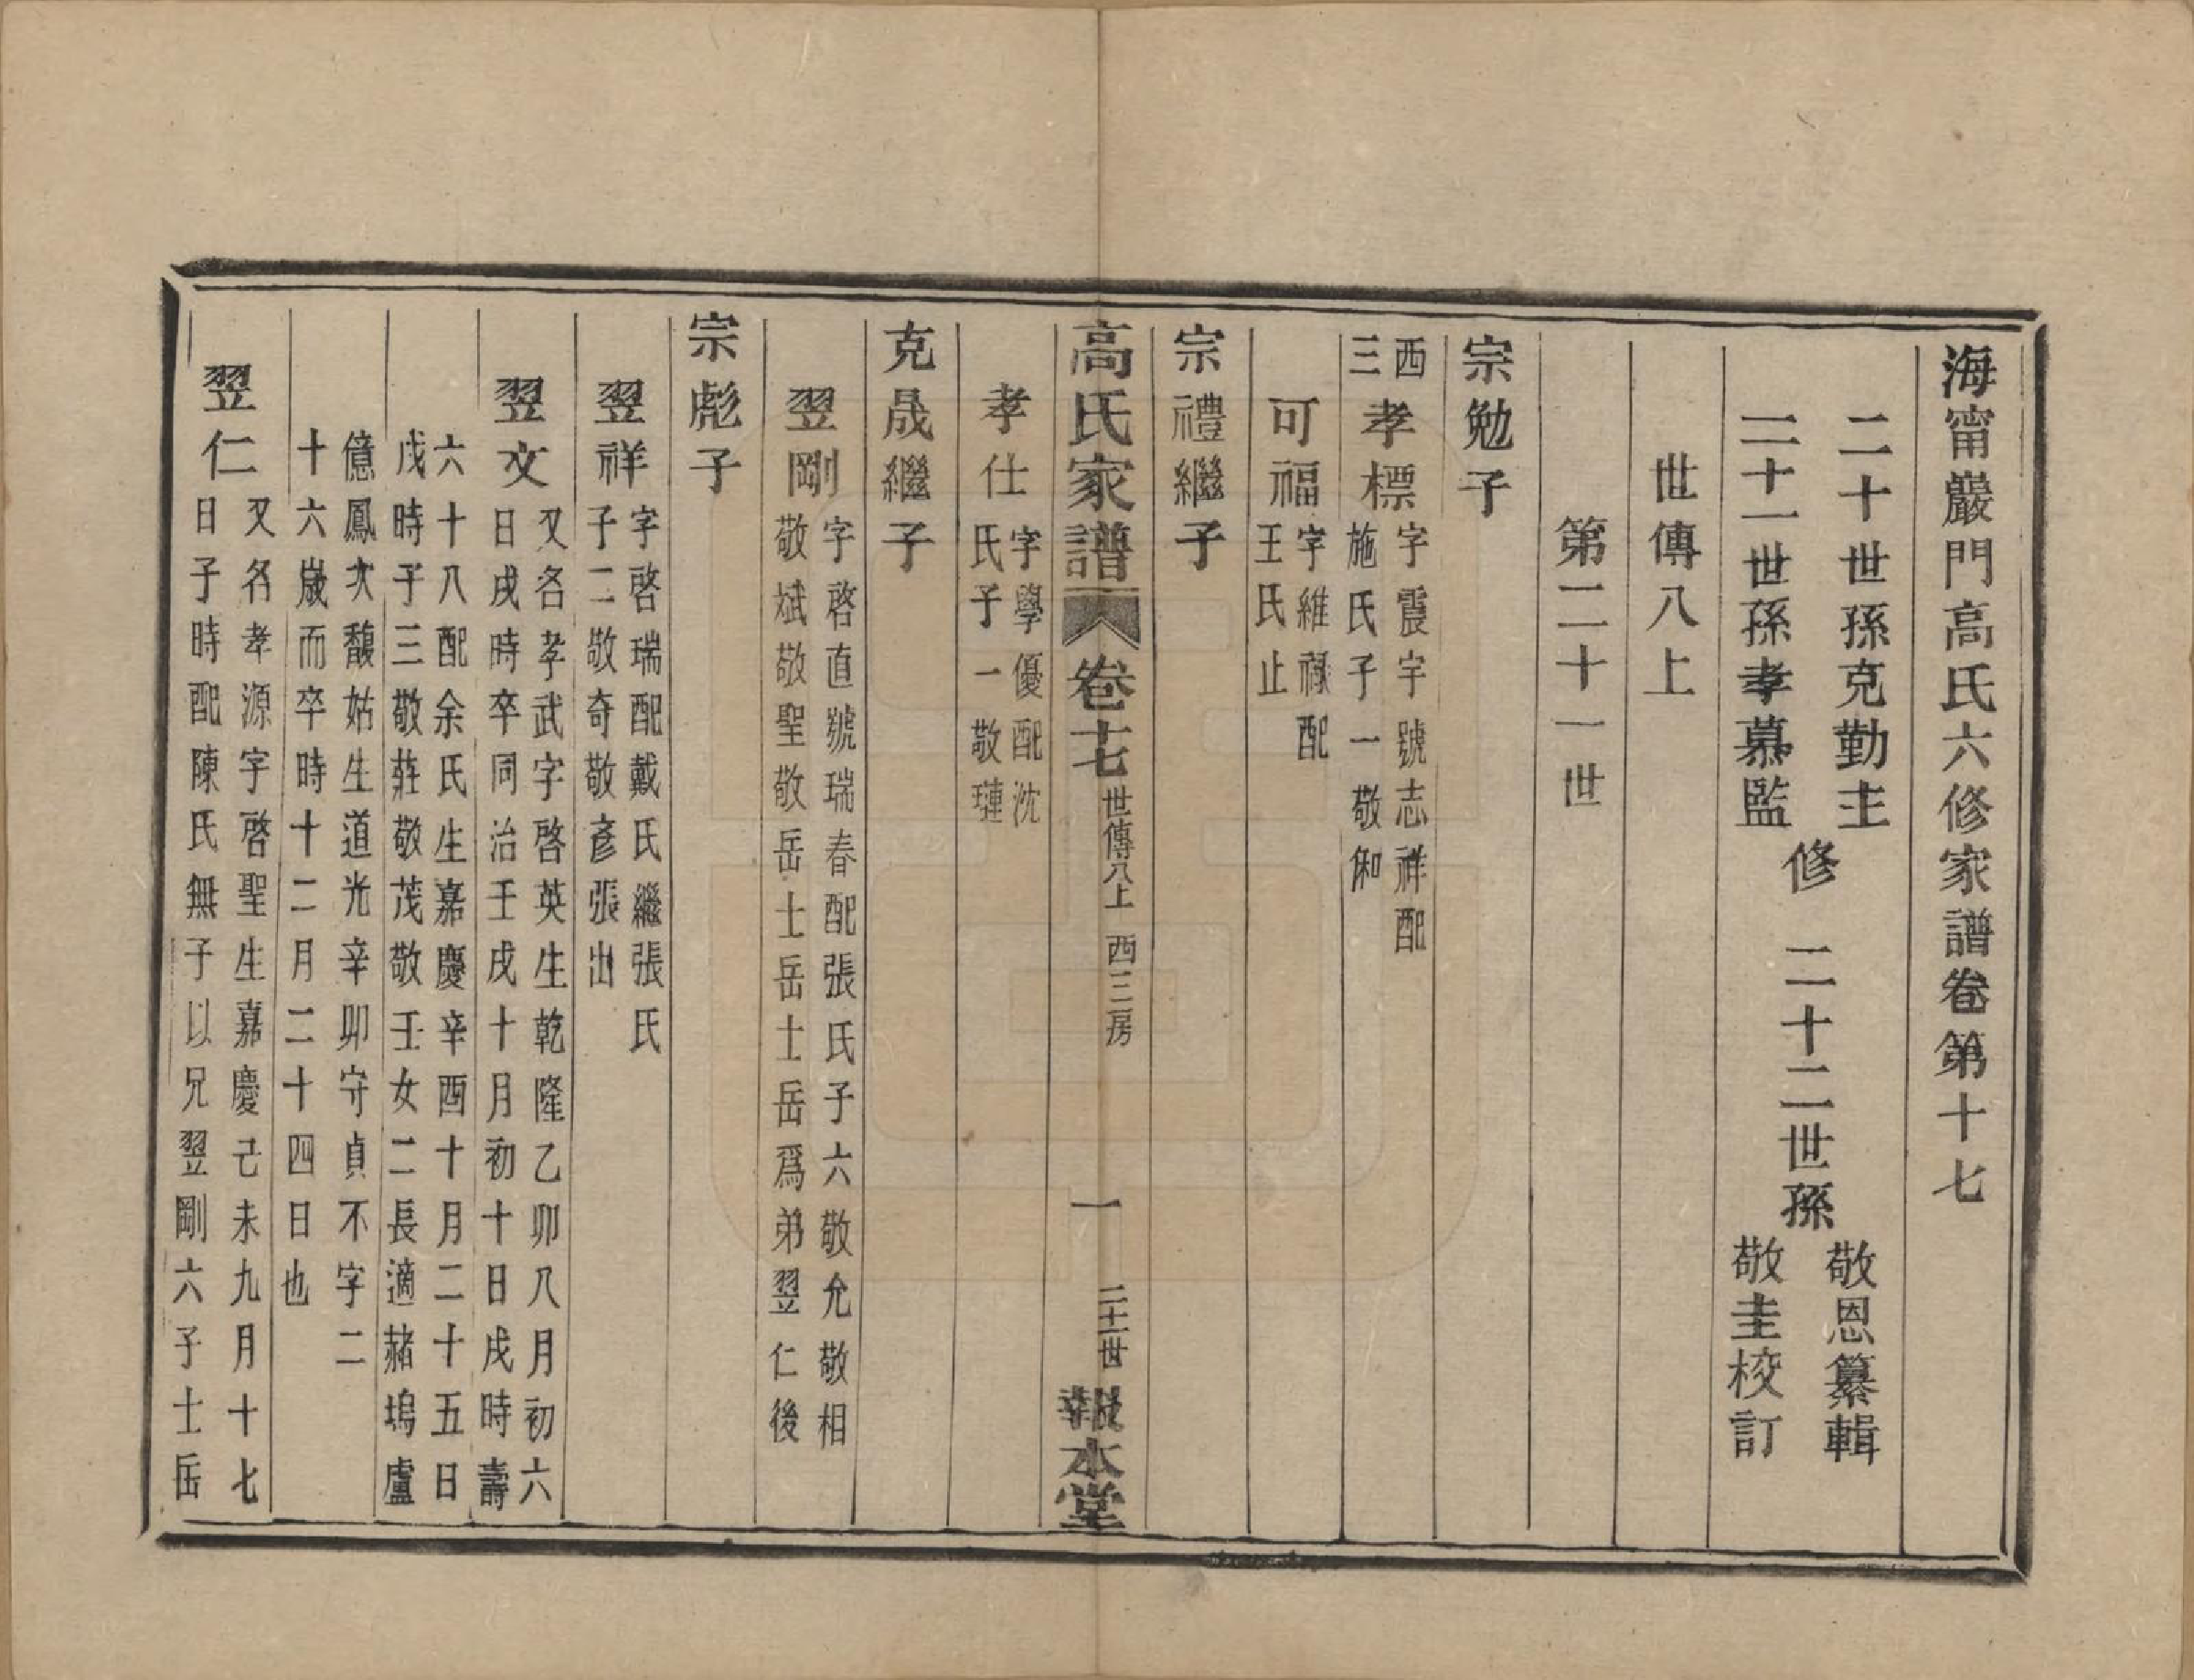 海甯巖門高氏六修家譜卷第十七
二十世孫克勤主
二十一世孫孝慕監
修
二十二世孫
敬恩纂輯
敬圭校訂
世傳八上
第二十一世
宗勉子
西三
孝標
字震宇號志祥配
施氏子一敬俰
可福
字維祿配
王氏止
宗禮繼子
高氏家譜
卷十七
世傳八上
西三房
一
二十一世
報本堂
孝仕
字學優配沈
氏子一敬璉
克晟繼子
翌剛
字啓直號瑞春配張氏子六敬允敬相
敬斌敬聖敬岳士岳士岳爲弟翌仁後
宗彪子
翌祥
字啓瑞配戴氏繼張氏
子二敬奇敬彥張出
翌文
又名孝武字啓英生乾隆乙卯八月初六
日戌時卒同治壬戌十月初十日戌時壽
六十八配余氏生嘉慶辛酉十月二十五日
戌時子三敬蓻敬茂敬壬女二長適赭塢盧
億鳳次馥姑生道光辛卯守貞不字二
十六歲而卒時十二月二十四日也
翌仁
又名孝源字啓聖生嘉慶己未九月十七
日子時配陳氏無子以兄翌剛六子士岳